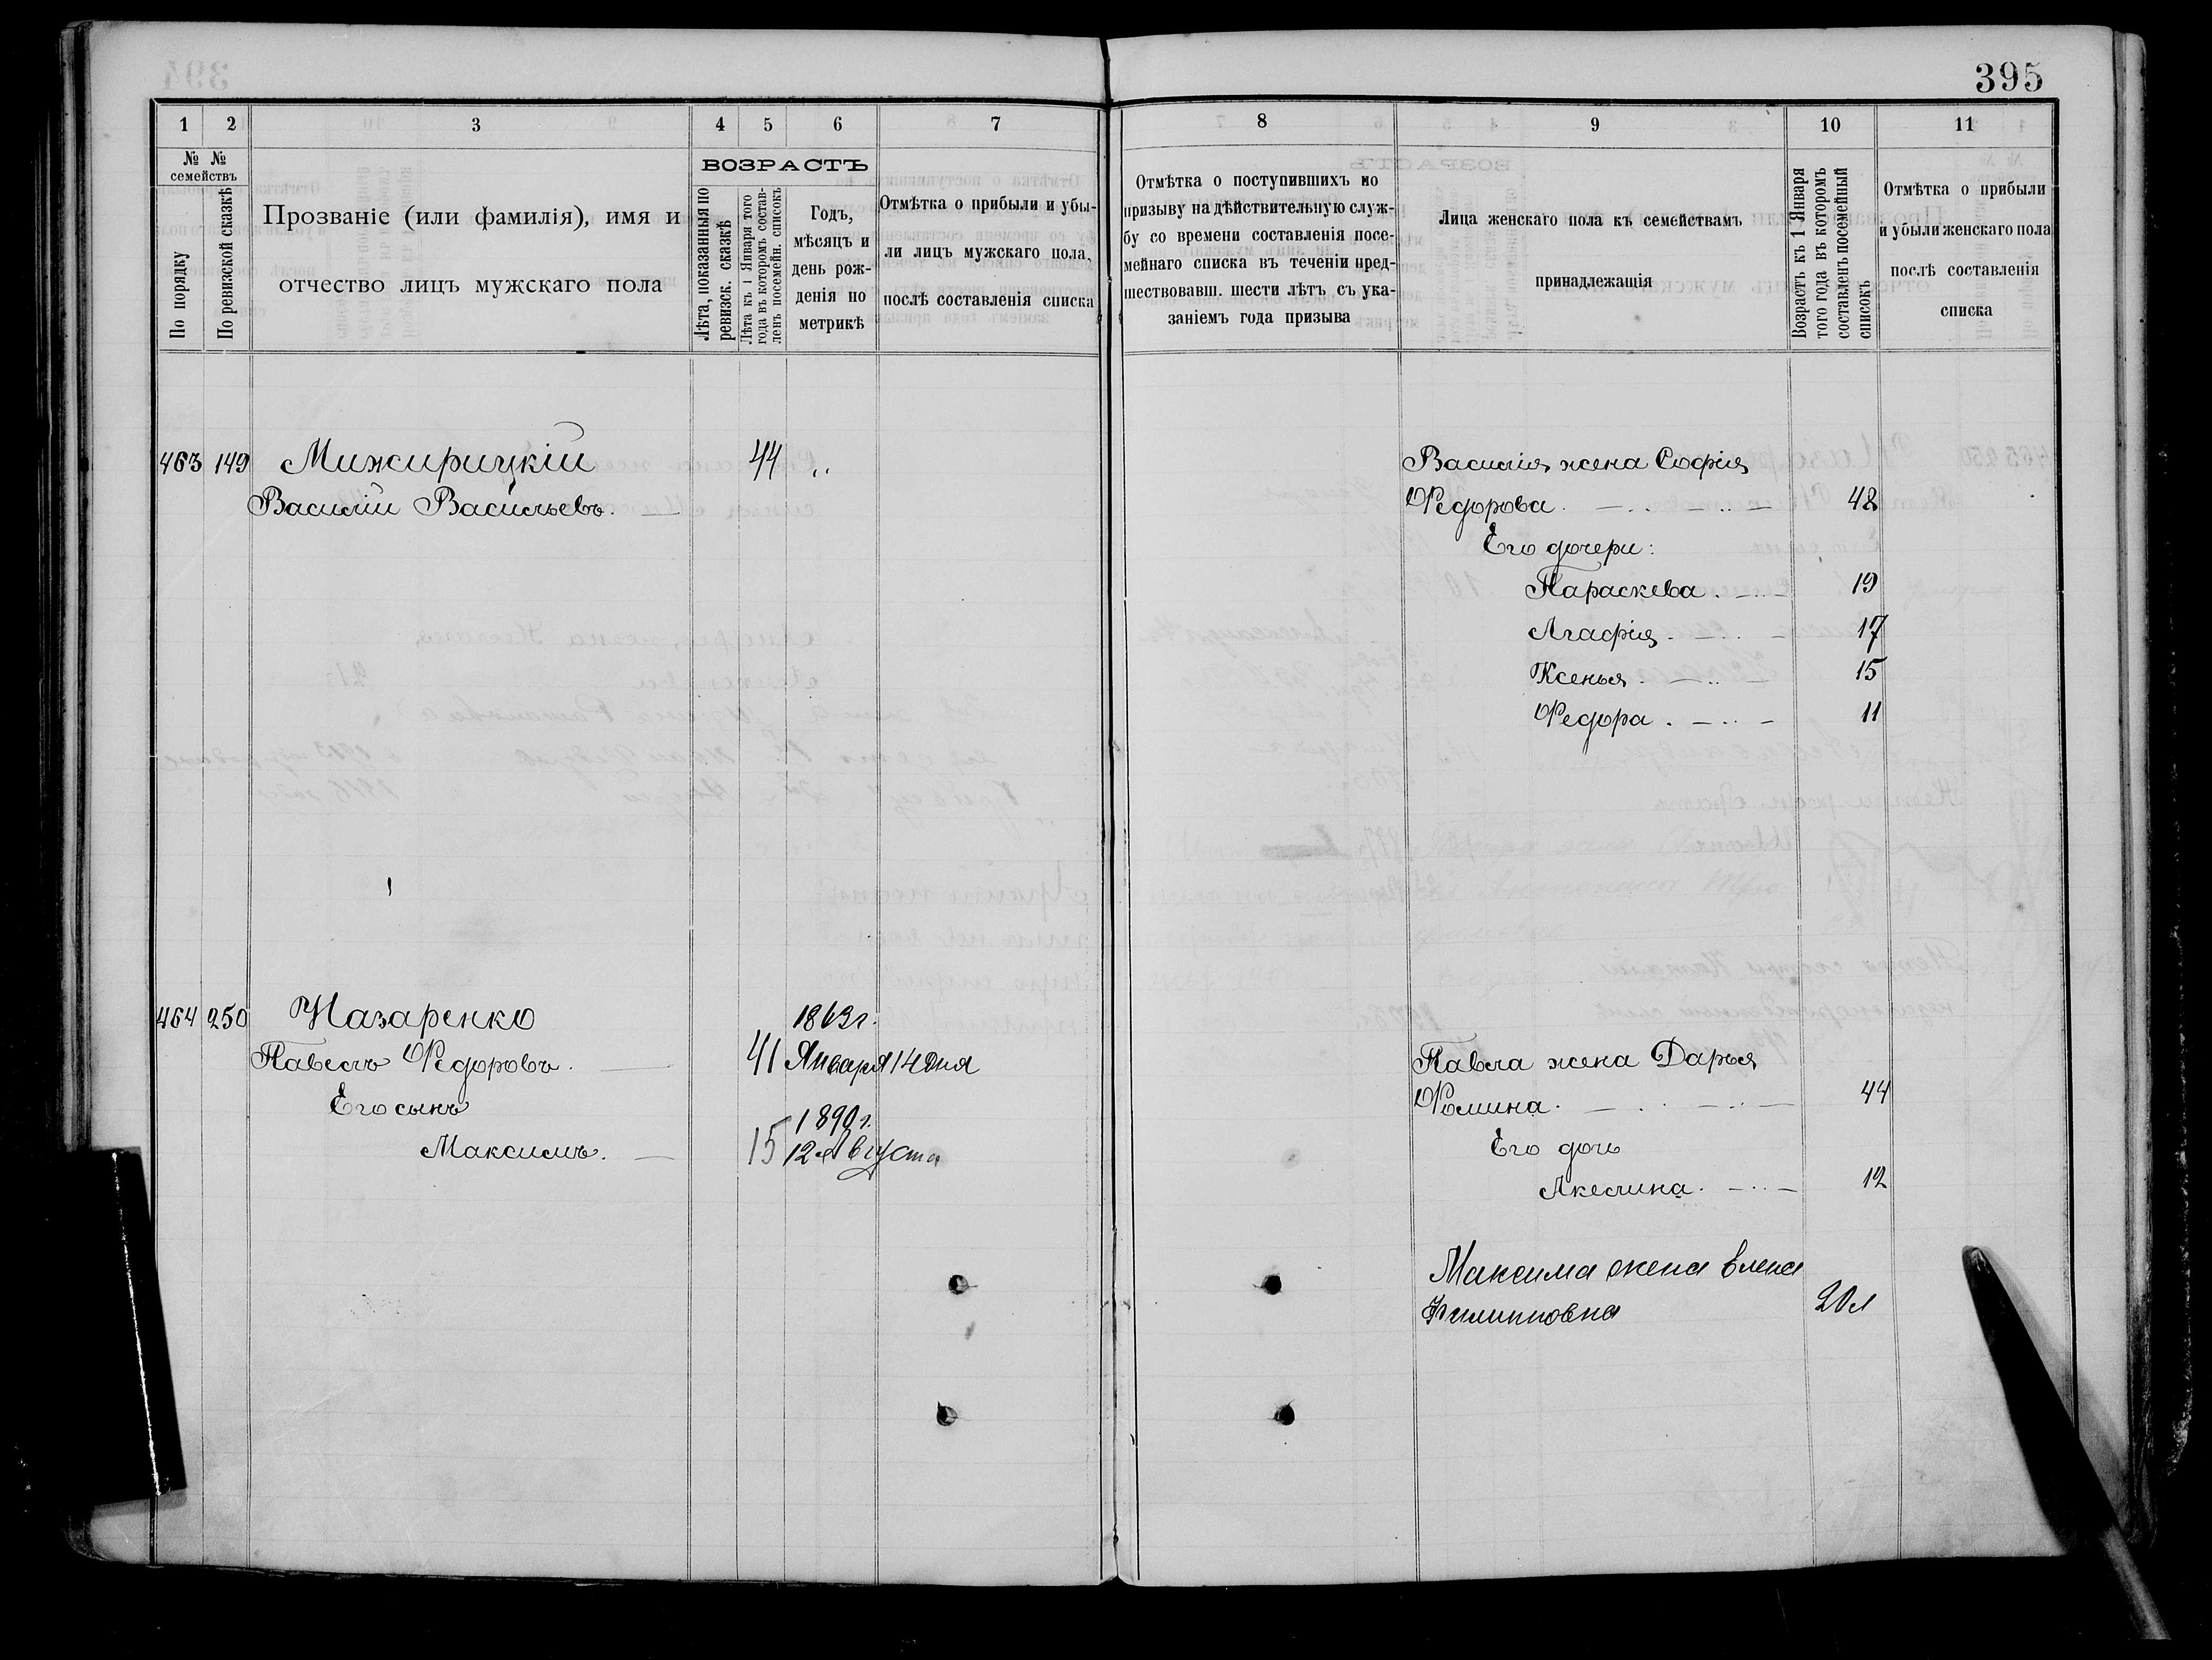 395
1 2 3 4 5 6 7
№ № семействъ
По порядку
По ревизской сказкѣ
Прозваніе (или фамилія), имя и
отчество лицъ мужскаго пола
ВОЗРАСТЪ
Лѣта, показанныя по
ревизск. сказкѣ
Лѣта къ 1 Января того
года въ которомъ состав-
ленъ посемейн. списокъ
Годъ,
мѣсяцъ и
день рож-
денія по
метрикѣ
Отмѣтка о прибыли и убы-
ли лицъ мужскаго пола,
послѣ составленія списка
463 149 Мижирицкій 44 „
Василій Васильевъ. —
464 250 Назаренко 1863г.
Павелъ Ѳедоровъ. — 41 Января 14 дня
Его сынъ 1890г.
Максимъ. — 15 12 Августа
8 9 10 11
Отмѣтка о поступившихъ по
призыву на дѣйствительную служ-
бу со времени составленія посе-
мейнаго списка въ теченіи пред-
шествовавш. шести лѣтъ съ ука-
заніемъ года призыва
Лица женскаго пола къ семействамъ
принадлежащія
Возрастъ къ 1 Января
того года въ которомъ
составленъ посемейный
списокъ
Отмѣтка о прибыли
и убыли женскаго пола
послѣ составленія
списка
Василія жена Софія
Ѳедорова. — 42
Его дочери:
Параскева. — 19
Агафія. — 17
Ксенья. — 15
Ѳедора. — 11
Павла жена Дарья
Ѳомина. — 44
Его дочь
Акелина. — 12
Максима жена Елена
Филипповна 20 л